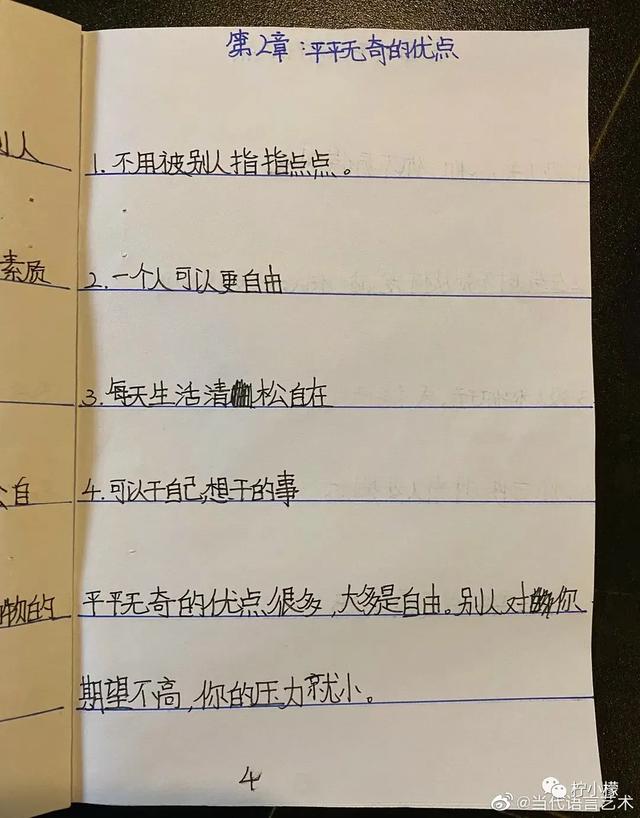 第2章:平平无奇的优点
别人
1.不用被别人指指点点。
素质
2.一个人可以更自由
3.每天生活清松自在
公自
4.可以干自己想干的事
物的
平平无奇的优点很多,大多是自由。别人对你
期望不高,你的压力就小。
4
柠小檬
@当代语言艺术